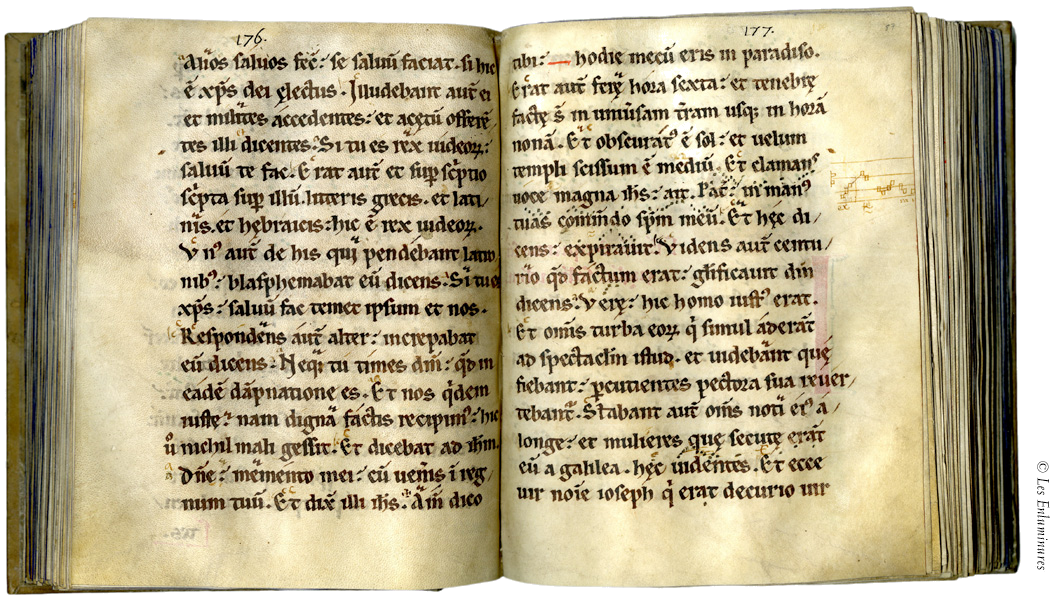 176.
Alios saluos fec̄: se saluū faciat. si hic
ē xp̄s dei ęlectus. Illudebant aut̄ ei
et milites accedentes: et acętū offerē
tes illi dicentes. Si tu es rex iudeoꝝ:
saluū te fac. Erat aut̄ et sup̄ sc̄ptio
sc̄pta sup̄ illū. litteris grecis. et lati
nis. et hębraicis: hic ē rex iudeoꝝ.
Vnꝰ aut̄ de his qui pendebant latro
nibꝰ: blasphemabat eū dicens. Si tu es
xp̄s: saluū fac temet ipsum et nos.
Respondens aut̄ alter: increpabat
eū dicens. Neqꝫ tu times dm̄: qd̄ in
eadē dāpnatione es. Et nos qͥdem
iuste: nam digna factis recipimꝰ: hic
ů nichil mali gessit. Et dicebat ad ih̄m.
Dn̄e: memento mei: cū ueneris ī reg
num tuū. Et dix̄ illi ih̄s. Am̄ dico
177.
tibi: hodie mecū eris in paradiso.
Erat aut̄ ferę hora sexta: et tenebrę
factę s̄ in uniūsam t̄ram usqꝫ in horā
nonā. Et obscuratꝰ ē sol: et uelum
templi scissum ē mediū. Et clamans
uoce magna ih̄s: ait. Pat̄: in manꝰ
tuas commendo sp̄m meū. Et hęc di
cens: expirauit. Videns aut̄ centu
rio qd̄ factum erat: gl̄ificauit dm̄
dicens. Verę: hic homo iustꝰ erat.
Et om̄is turba eoꝝ qͥ simul aderāt
ad spectaclm̄ istud. et uidebant quę
fiebant: p̲cutientes pectora sua reuer
tebant̄. Stabant aut̄ om̄s noti eiꝰ a
longe: et mulieres quę secutę erāt
eū a galilea. hęc uidentes. Et ecce
uir noīe ioseph qͥ erat decurio uir
© Les Enluminures